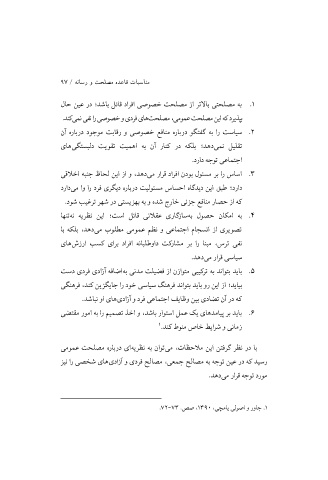 مناسبات قاعده مصلحت و رسانه / ۹۷
۱. به مصلحتی بالاتر از مصلحت خصوصی افراد قائل باشد؛ در عین حال
بپذیرد که این مصلحت عمومی، مصلحت‌های فردی و خصوصی را نفی نمی‌کند.
۲. سیاست را به گفتگو درباره منافع خصوصی و رقابت موجود درباره آن
تقلیل نمی‌دهد؛ بلکه در کنار آن به اهمیت تقویت دلبستگی‌های
اجتماعی توجه دارد.
۳. اساس را بر مسئول بودن افراد قرار می‌دهد، و از این لحاظ جنبه اخلاقی
دارد؛ طبق این دیدگاه احساس مسئولیت درباره دیگری فرد را وا می‌دارد
که از حصار منافع جزئی خارج شده و به بهزیستی در شهر ترغیب شود.
۴. به امکان حصول به‌سازگاری عقلانی قائل است؛ این نظریه نه‌تنها
تصویری از انسجام اجتماعی و نظم عمومی مطلوب می‌دهد، بلکه با
نفی ترس، مبنا را بر مشارکت داوطلبانه افراد برای کسب ارزش‌های
سیاسی قرار می‌دهد.
۵. باید بتواند به ترکیبی متوازن از فضیلت مدنی به‌اضافه آزادی فردی دست
بیابد؛ از این رو باید بتواند فرهنگ سیاسی خود را جایگزین کند، فرهنگی
که در آن تضادی بین وظایف اجتماعی فرد و آزادی‌های او نباشد.
۶. باید بر پیامدهای یک عمل استوار باشد، و اخذ تصمیم را به امور مقتضی
زمانی و شرایط خاص منوط کند.۱
با در نظر گرفتن این ملاحظات، می‌توان به نظریه‌ای درباره مصلحت عمومی
رسید که در عین توجه به مصالح جمعی، مصالح فردی و آزادی‌های شخصی را نیز
مورد توجه قرار می‌دهد.
۱. جاور و اصولی یامچی، ۱۳۹۰، صص. ۷۳-۷۲.